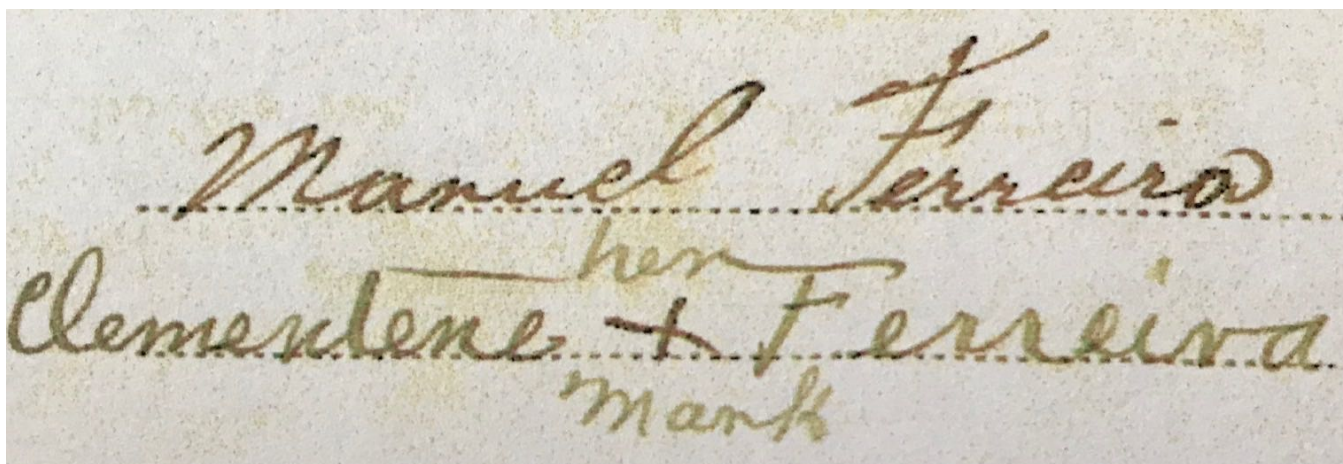 Manuel Ferreira
her
Clementene + Ferreira
mark